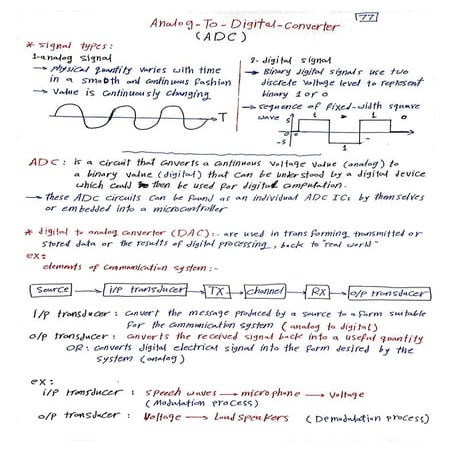 77
Analog-To-Digital-Converter
(ADC)
* Signal types:
1-analog signal
→ physical quantity varies with time
in a smooth and continuous fashion
→ value is continuously changing
T
2-digital signal
→ Binary digital signals use two
discrete voltage level to represent
binary 1 or 0
→ sequence of fixed-width square
wave
5
-5
1
1
0
0
ADC: is a circuit that converts a continuous voltage value (analog) to
a binary value (digital) that can be understood by a digital device
which could then be used for digital computation.
→ These ADC circuits can be found as an individual ADC ICs by themselves
or embedded into a microcontroller
* digital to analog converter (DAC):- are used in transforming transmitted or
stored data or the results of digital processing, back to "real world"
ex:
elements of communication system:-
Source → i/p transducer → TX → channel → RX → o/p transducer
i/p transducer: convert the message produced by a source to a form suitable
for the communication system (analog to digital)
o/p transducer: converts the received signal back into a useful quantity
OR: converts digital electrical signal into the form desired by the
system (analog)
ex:
i/p transducer: speech waves → microphone → voltage
(Modulation process)
o/p transducer: voltage → Loud speakers (Demodulation process)